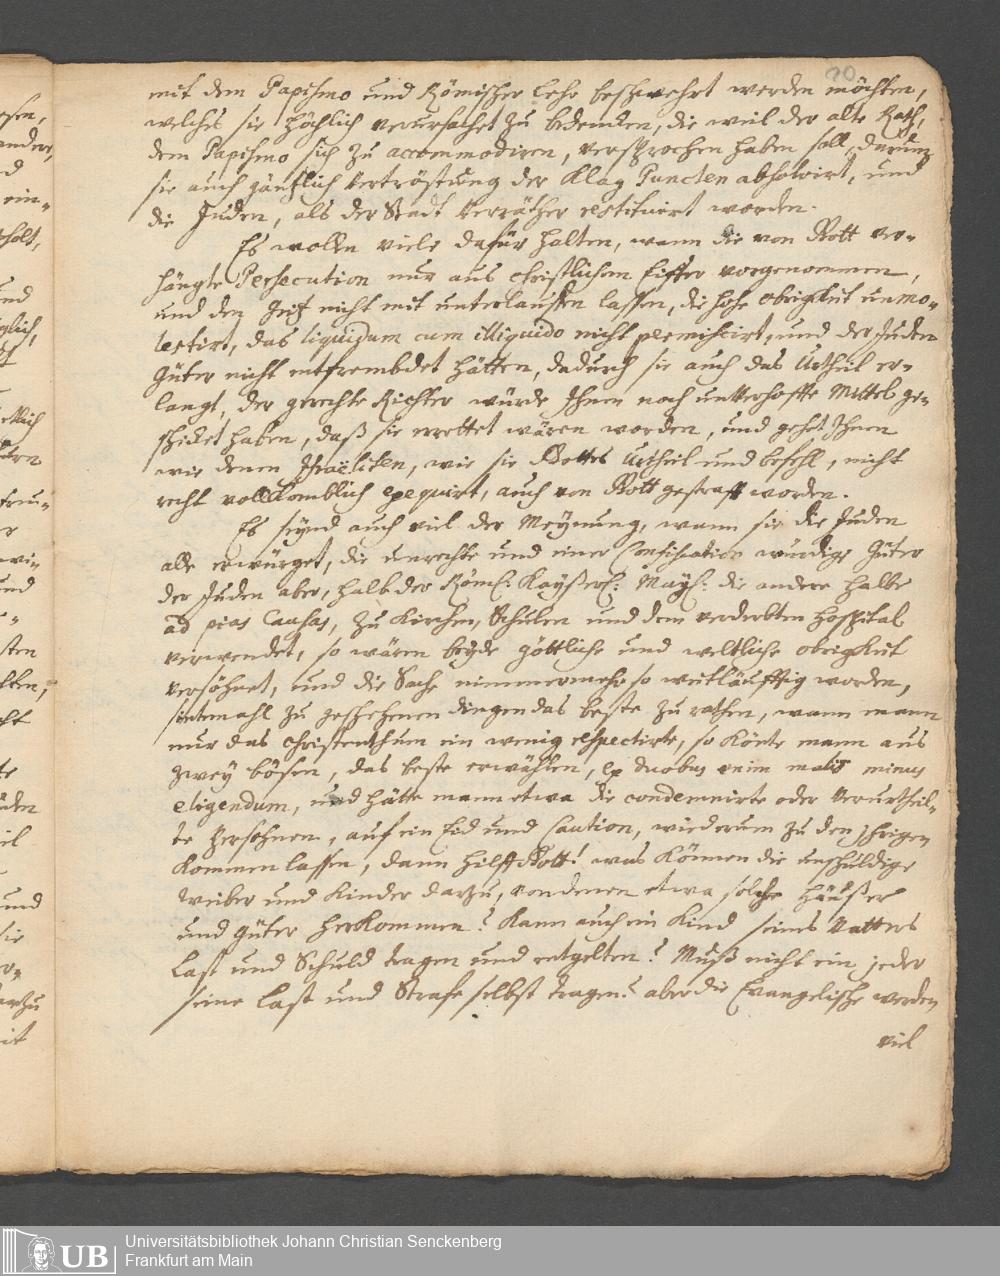 20
mit dem Papismo und Römischer Lehr beschwehrt werden möchten,
welches sie höchlich verursachet zu bedencken, die weil der alte Rath,
dem Papismo sich zu accommodiren, versprochen haben soll, darum
sie auch gäntzlich Vertröstung der Klag Puncten absolvirt, und
die Juden, als der Stadt Verräther restituirt worden.
Es wollen viele dafür halten, wann die von Gott ver-
hängte Persecution nur aus christlichem Eiffer vorgenommen,
und den Geitz nicht mit unterlauffen lassen, die hohe Obrigkeit unmo-
lestirt, das liquidum cum illiquido nicht permiscirt, und der Juden
Güter nicht entfrembdet hätten, dadurch sie auch das Urtheil er-
langt, der gerechte Richter würde Ihnen noch unverhoffte Mittel ge-
schicket haben, daß sie errettet wären worden, und gehet Ihnen
wie denen Israëliten, wie sie Gottes Urtheil und befehl, nicht
recht vollkomblich exequirt, auch von Gott gestrafft worden.
Es seynd auch viel der Meynung, wann sie die Juden
alle erwürget, die unrechte und einer Confiscation würdige Güter
der Juden aber, halb der Röml: Kayßerl: Mayl: die andere halbe
ad pias Causas, zu Kirchen, Schulen und dem verderbten Hospital
verwendet, so wären beyde göttliche und weltliche Obrigkeit
versöhnet, und die Sache nimmermehr so weitläufftig worden,
sintemahl zu geschehenen dingen das beste zu rathen, wann mann
nur das Christenthum ein wenig respectirte, so könte mann aus
zwey bösen, das beste erwählen, ex duobus enim malis minus
eligendum, und hätte mann etwa die condemnirte oder Verurtheil-
te Persohnen, auf ein Eid und Caution, wiederum zu den Ihrigen
kommen lassen, dann hilff Gott! was können die unschuldige
Weiber und Kinder darzu, von denen etwa solche Häußer
und Güter herkommen? Kann auch ein Kind seines Vatters
Last und Schuld tragen und entgelten? Muß nicht ein jeder
seine Last und Strafe selbst tragen? aber die Evangelische werden
viel
UB
Universitätsbibliothek Johann Christian Senckenberg
Frankfurt am Main